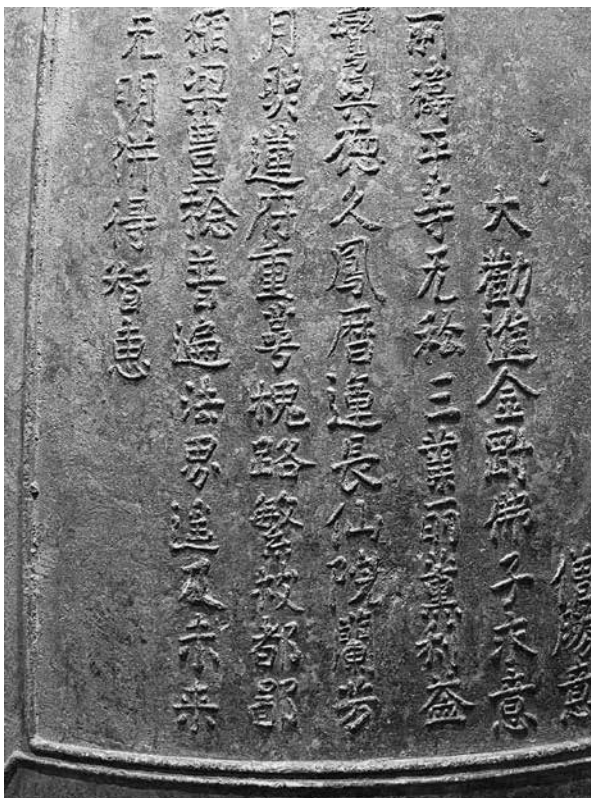 僧勝意
大勸進金剛佛子永意
所禱平等无私三業所薫利益
響與德久鳳曆運長仙院蘭芳
月照蓮府重萼槐路繁枝都鄙
稻梁豊稔善遍法界遥及未来
元明併得智恵